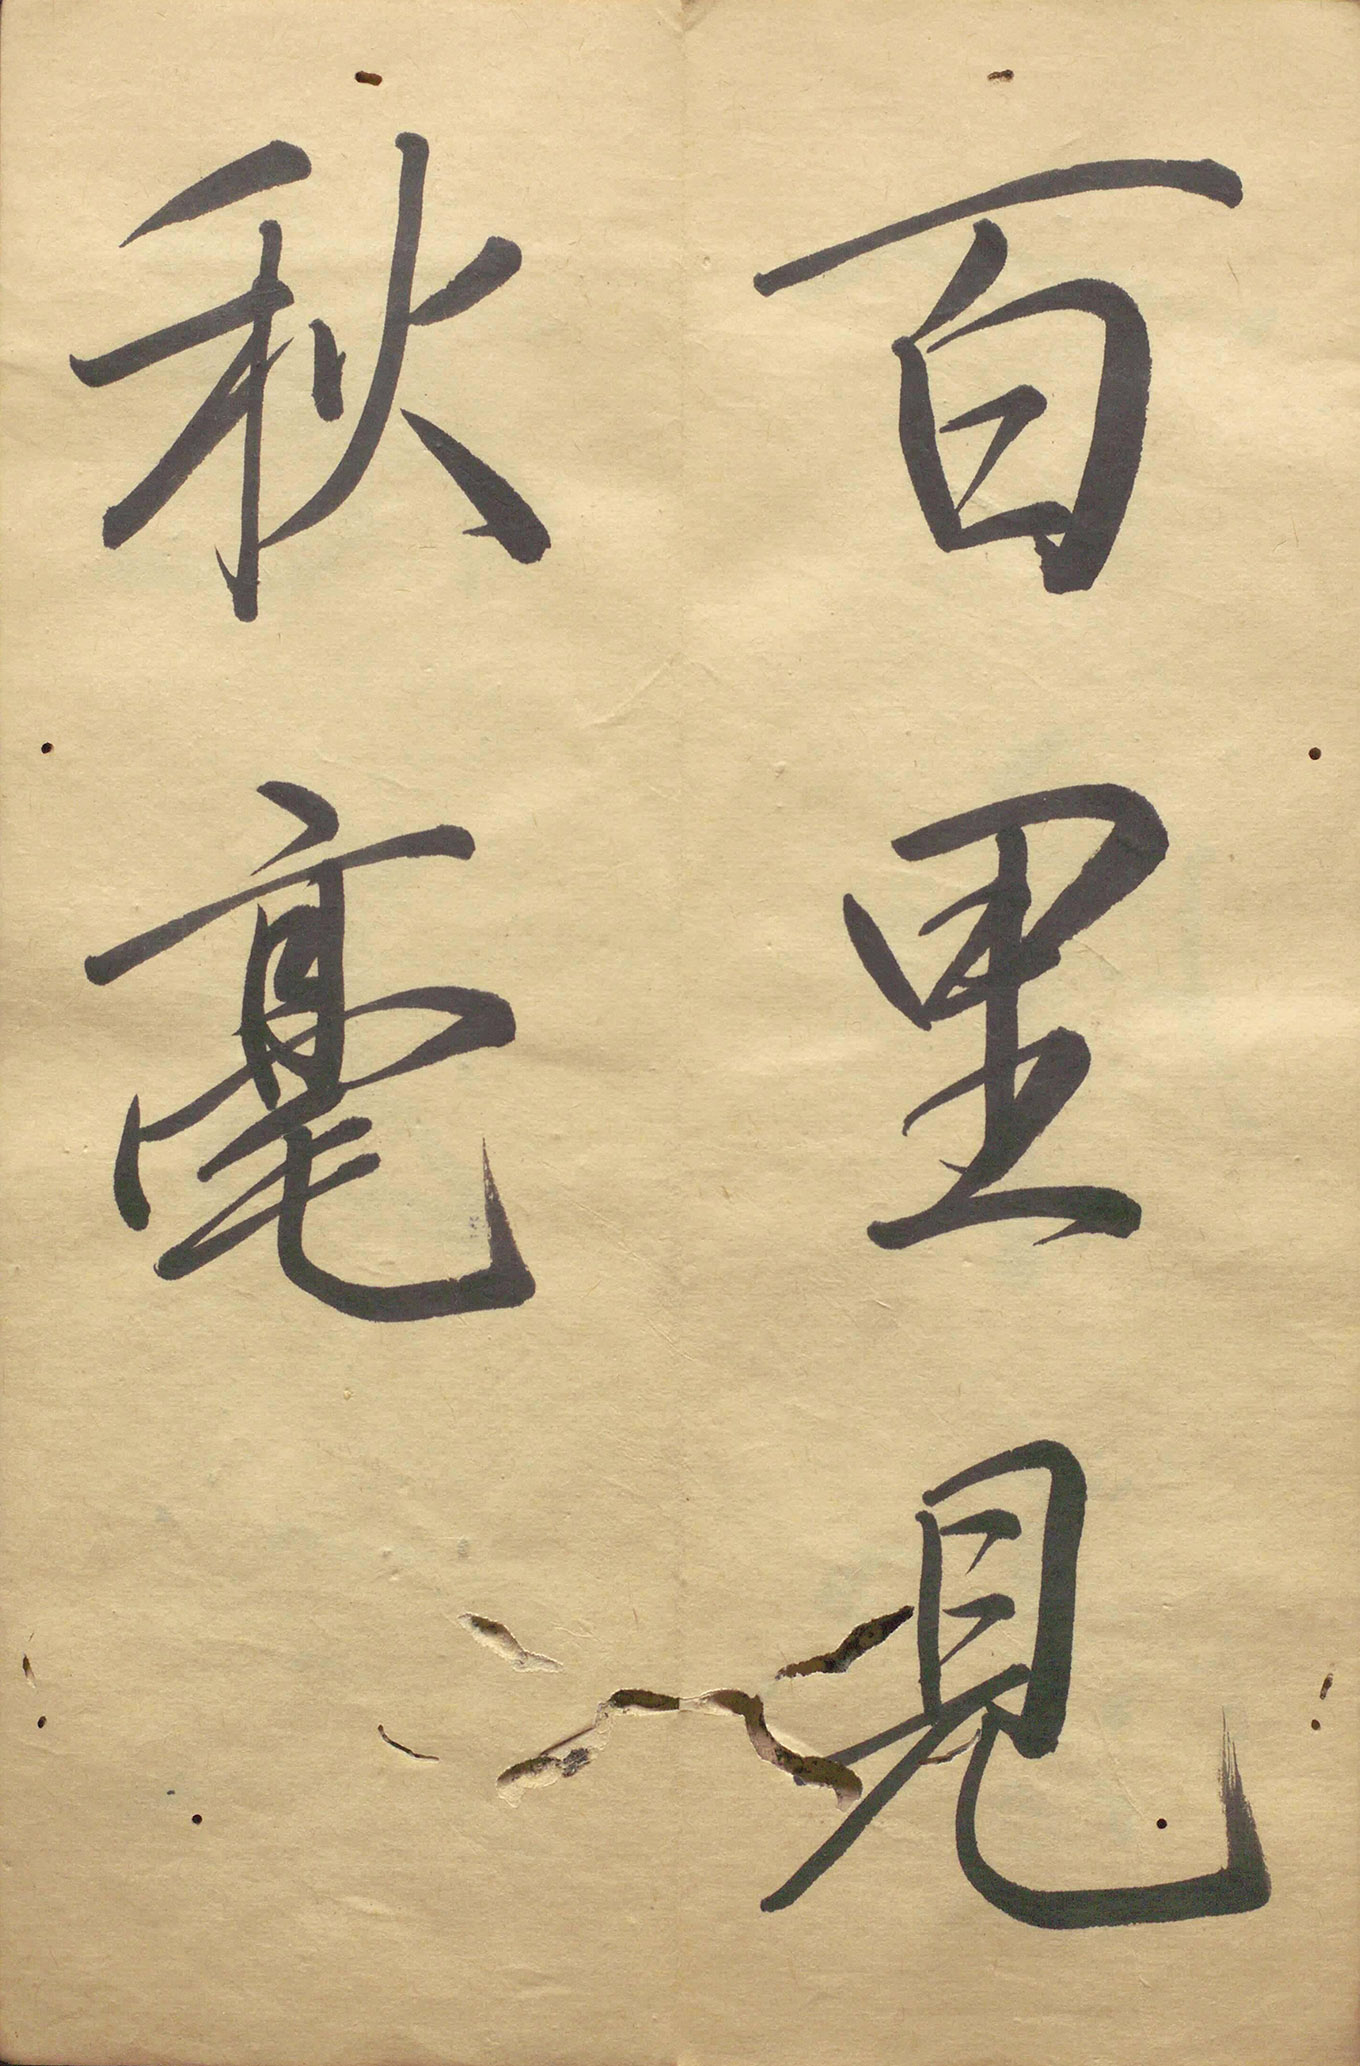 百里見
秋毫